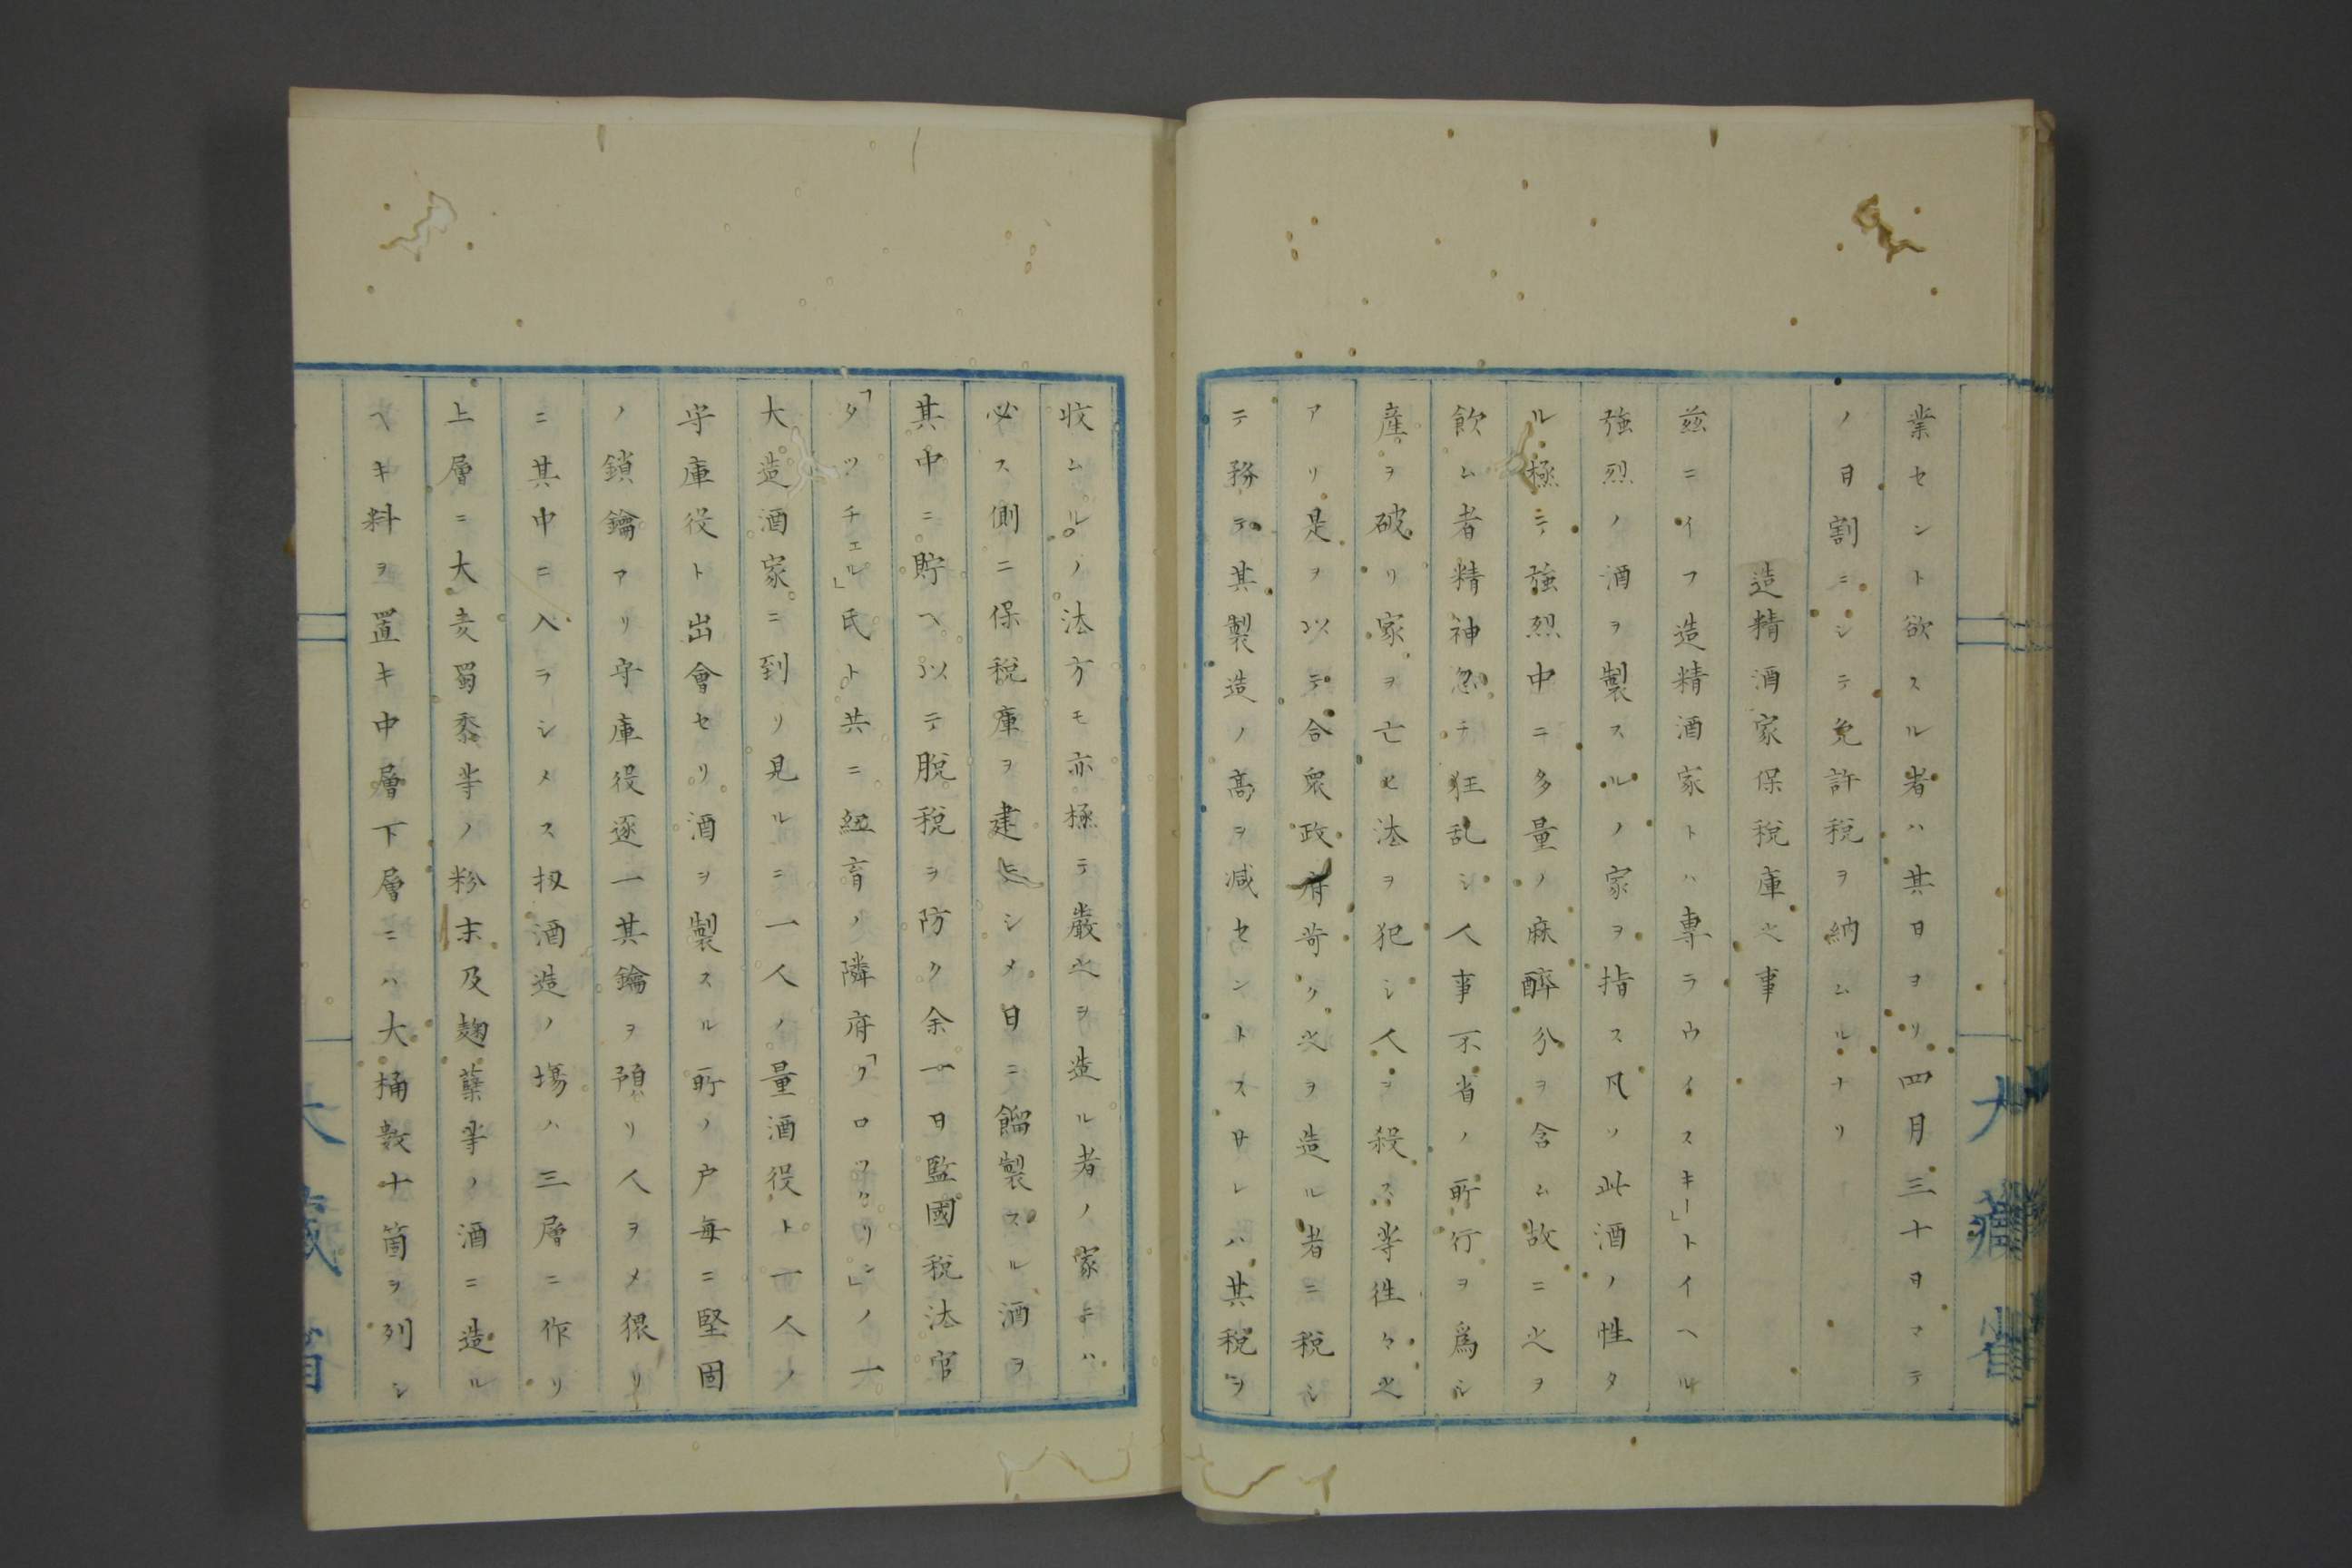 業セント欲スル者ハ其日ヨリ四月三十日マテ
ノ日割ニシテ免許税ヲ納ムルナリ
造精酒家保税庫之事
茲ニイフ造精酒家トハ専ラウイスキー」トイヘル
強烈ノ酒ヲ製スルノ家ヲ指ス凡ソ此酒ノ性タ
ル極テ強烈中ニ多量ノ麻酔分ヲ含ム故ニ之ヲ
飲ム者精神忽チ狂乱シ人事不省ノ所行ヲ為シ
産ヲ破リ家ヲ亡ヒ法ヲ犯シ人ヲ殺ス等往々之
アリ是ヲ以テ合衆政府苛ク之ヲ造ル者ニ税シ
テ務テ其製造ノ高ヲ減セントスサレハ其税ヲ
收ムルノ法方モ亦極テ嚴之ヲ造ル者ノ家ニハ
必ス側ニ保税庫ヲ建シメ日ニ餾製スル酒ヲ
其中ニ貯ヘ以テ脱税ヲ防ク余一日監國税法官
「タツチエル」氏ト共ニ紐育ノ隣府「クロツクリン」ノ一
大造酒家ニ到リ見ルニ一人ノ量酒役ト一人ノ
守庫役ト出會セリ酒ヲ製スル所ノ戸毎ニ堅固
ノ鎖鑰アリ守庫役逐一其鑰ヲ預リ人ヲメ猥リ
ニ其中ニ入ラシメス扨酒造ノ場ハ三層ニ作リ
上層ニ大麦蜀黍等ノ粉末及麹蘖等ノ酒ニ造ル
ヘキ料ヲ置キ中層下層ニハ大桶数十箇ヲ列シ
大藏省